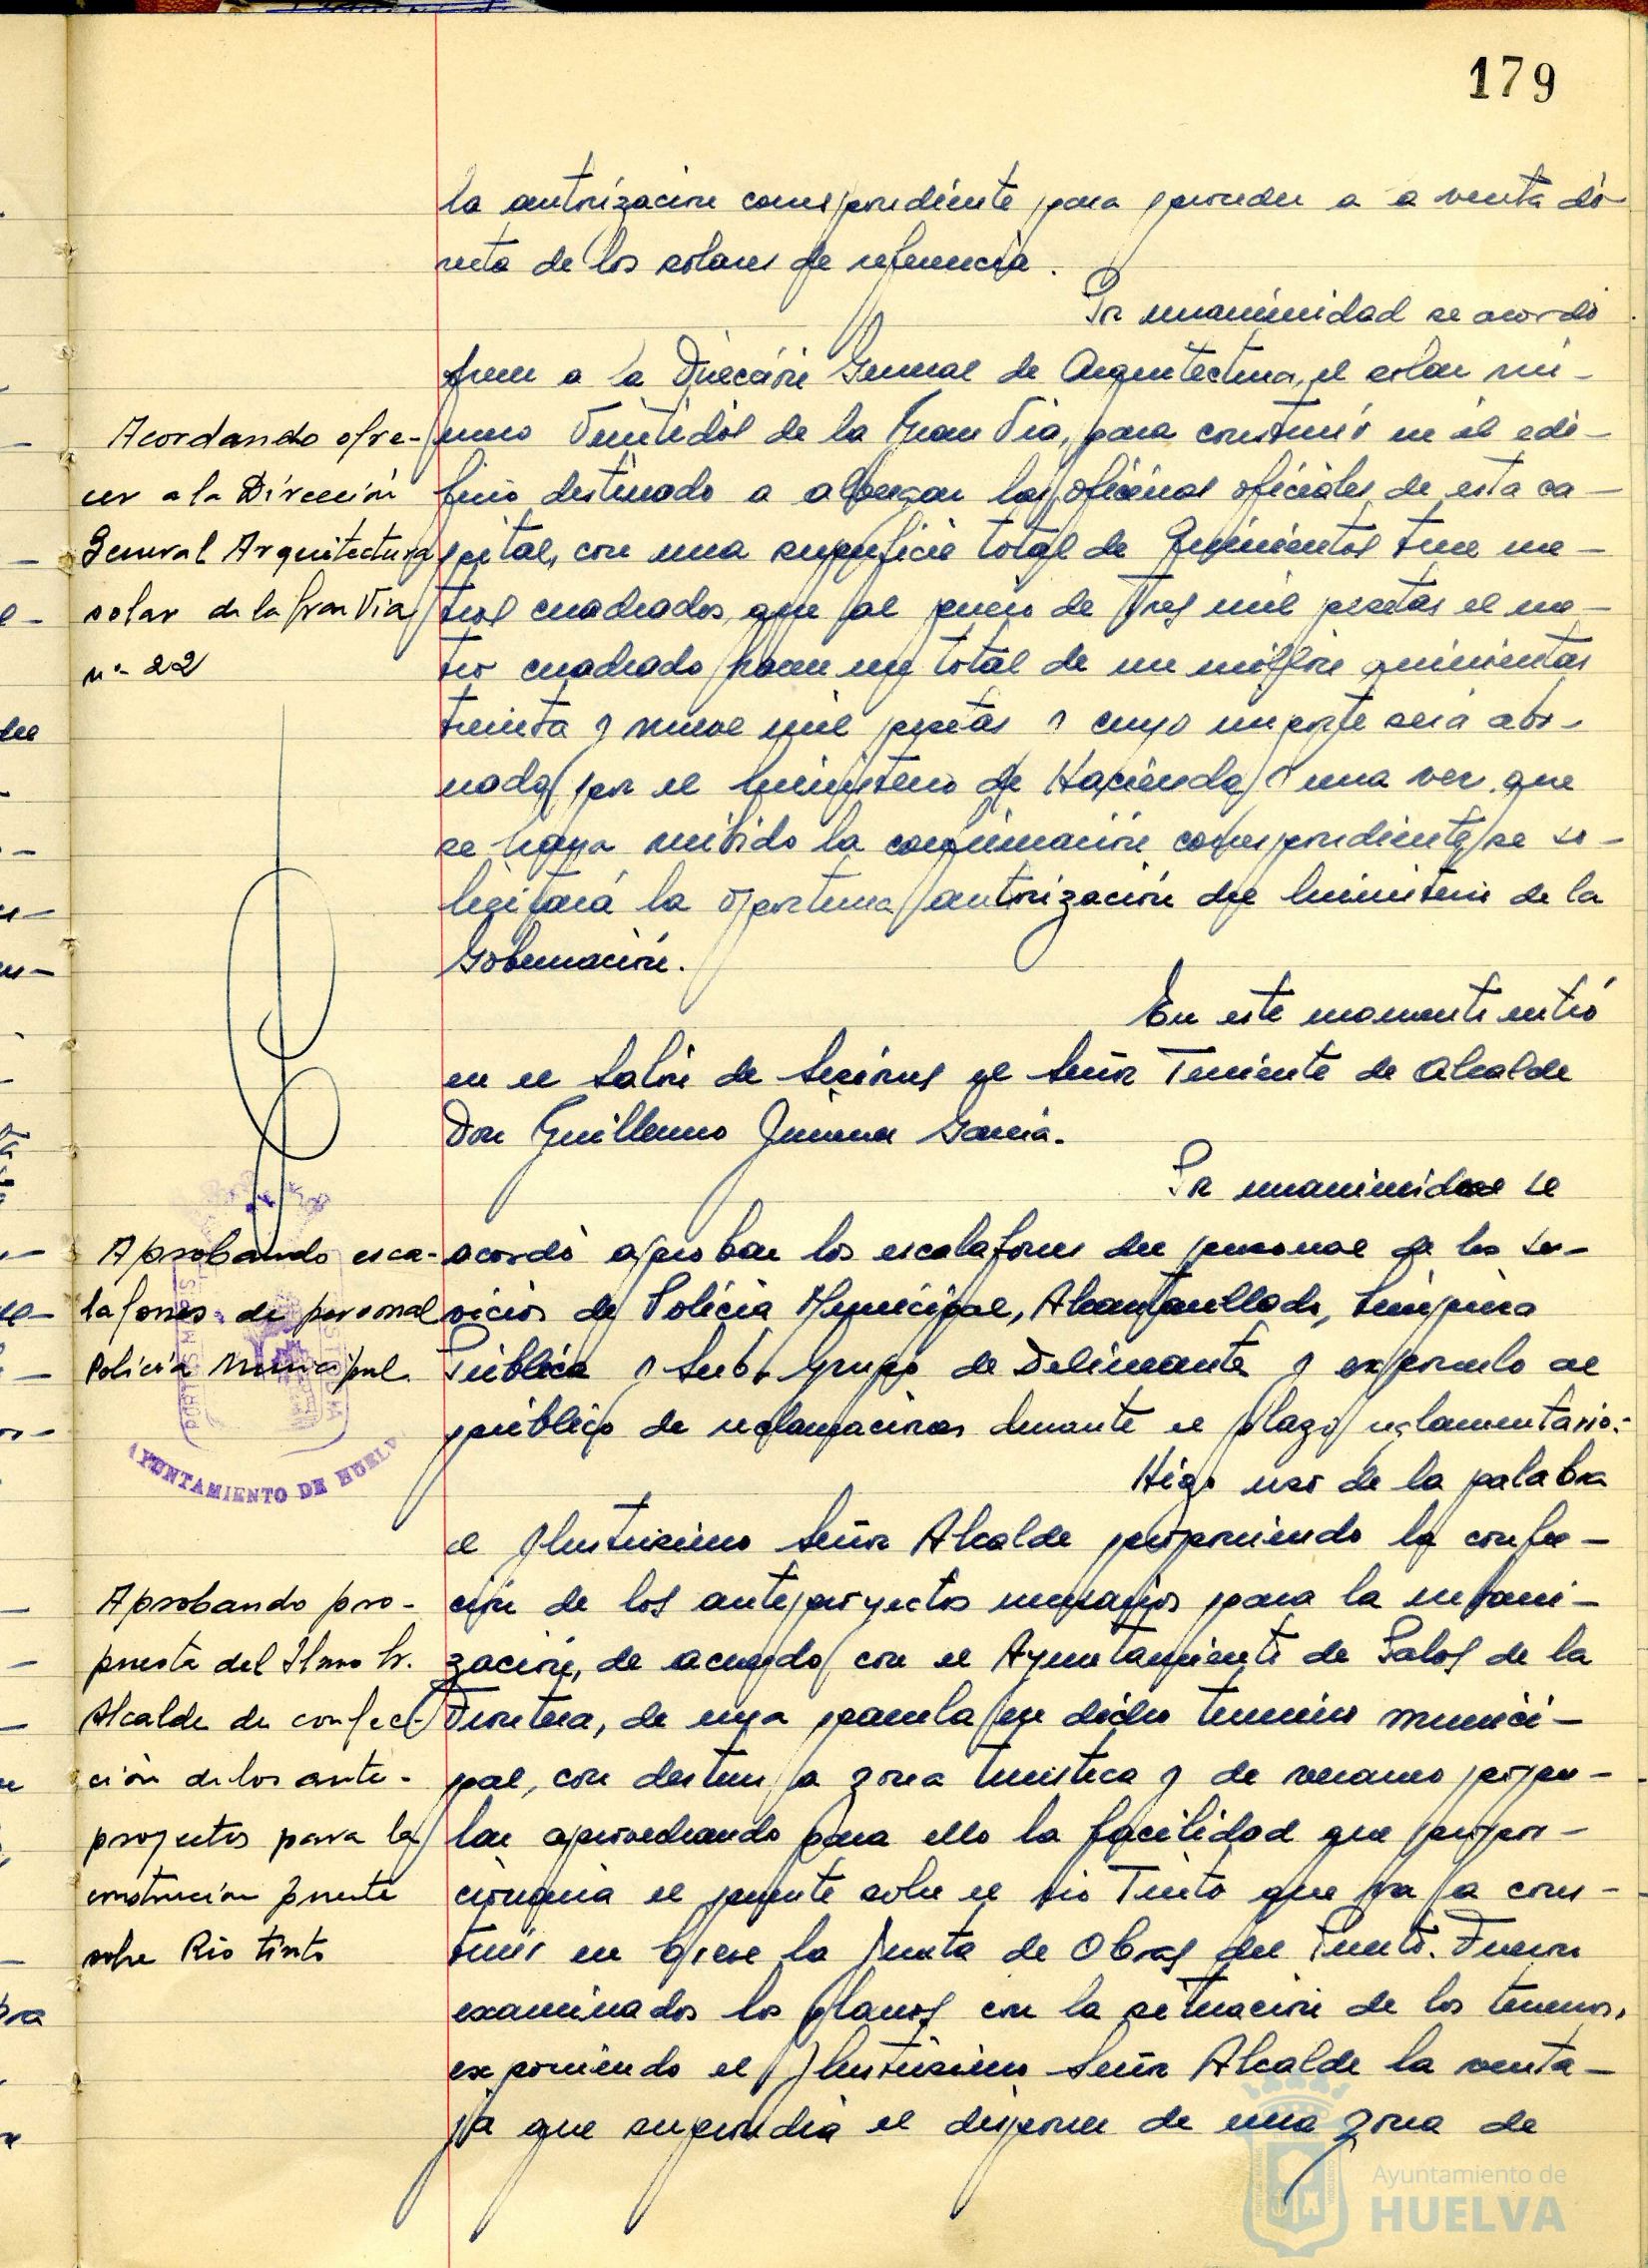 179
la autorización correspondiente para proceder a a venta di-
recta de los solares de referencia.
Por unanimidad se acordó
ofrecer a la Dirección General de Arquitectura, el solar nú-
mero Veintidós de la Gran Vía, para construir en él edi-
ficio destinado a albergar las oficinas oficiales de esta ca-
pital, con una superficie total de Quinientos trece me-
tros cuadrados, que al precio de Tres mil pesetas el me-
tro cuadrado hacen un total de un millón quinientas
treinta y nueve mil pesetas y cuyo importe será abo-
nado por el Ministerio de Hacienda y una vez que
se haya recibido la confirmación correspondiente se so-
licitará la oportuna autorización del Ministerio de la
Gobernación.
En este momento entró
en el Salón de Sesiones el Señor Teniente de Alcalde
Don Guillermo Jimenez García.
Por unanimidad se
acordó aprobar los escalafones del personal de los Ser-
vicios de Policía Municipal, Alcantarillado, Limpieza
Pública y Sub. grupo de Delineante y exponerlo al
público de reclamaciones durante el plazo reglamentario.-
Hizo uso de la palabra
el Ilustrisimo Señor Alcalde proponiendo la confec-
ción de los anteproyectos necesarios para la urbani-
zación, de acuerdo con el Ayuntamiento de Palos de la
Frontera, de una parcela en dicho termino munici-
pal, con destino a zona turistica y de veraneo popu-
lar aprovechando para ello la facilidad que propor-
cionaria el puente sobre el rio Tinto que va a cons-
truir en breve la Junta de Obras del Puerto. Fueron
examinados los planos con la situación de los terrenos,
exponiendo el Ilustrisimo Señor Alcalde la venta-
ja que supondria el disponer de una zona de
Acordando ofre-
cer a la Dirección
General Arquitectura
solar de la Gran Via
nº 22
Aprobando esca-
lafones de personal
Policía Municipal.
AYUNTAMIENTO DE HUELVA
Aprobando pro-
puesta del Ilmo Sr.
Alcalde de confec-
ción de los ante-
proyectos para la
construcion puente
sobre Rio tinto
Ayuntamiento de
HUELVA